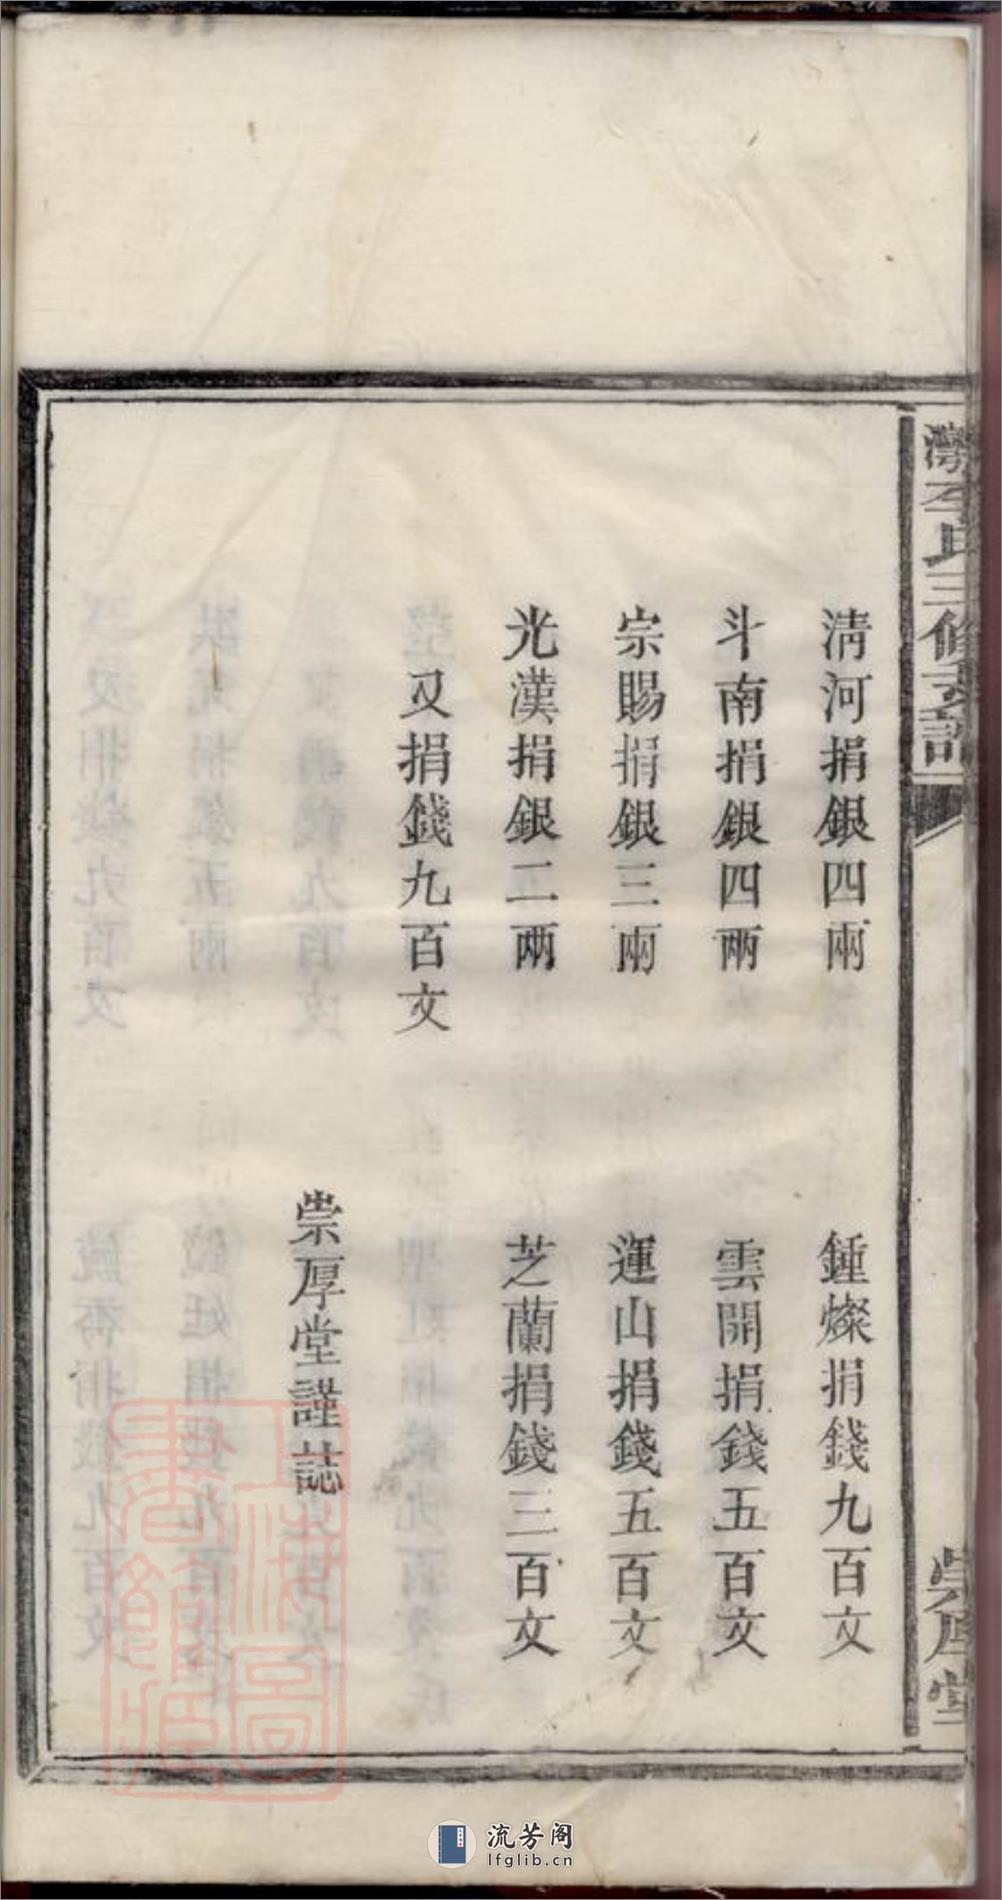 李氏三修支譜
清河捐銀四兩
鍾燦捐錢九百文
斗南捐銀四兩
雲開捐錢五百文
宗賜捐銀三兩
運山捐錢五百文
光漢捐銀二兩
芝蘭捐錢三百文
又捐錢九百文
崇厚堂謹誌
崇厚堂
上海圖書館藏
流芳阁
lfglib.cn